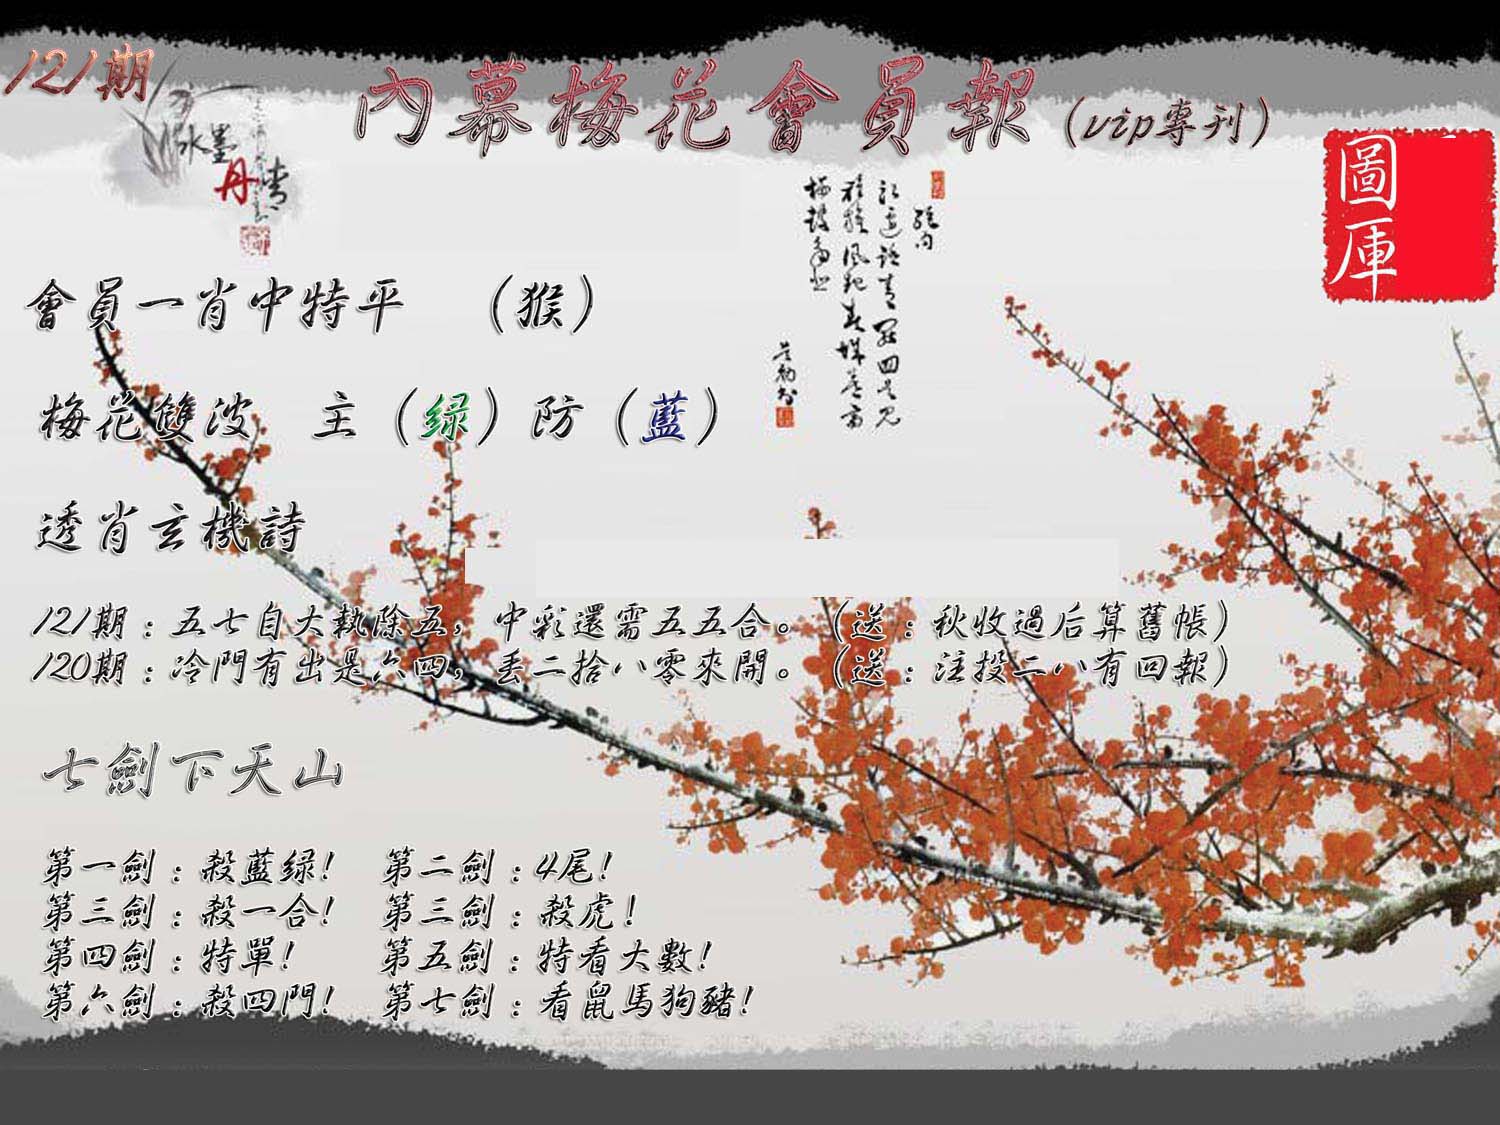 121期
內幕梅花會員報（vip專刊）
水墨
丹青
圖庫
會員一肖中特平 （猴）
梅花雙波 主（绿）防（藍）
透肖玄機詩
121期：五七自大執除五，中彩還需五五合。（送：秋收過后算舊帳）
120期：冷門有出是六四，丟二拾八零來開。（送：注投二八有回報）
七劍下天山
第一劍：殺藍绿！ 第二劍：4尾！
第三劍：殺一合！ 第三劍：殺虎！
第四劍：特單！ 第五劍：特看大數！
第六劍：殺四門！ 第七劍：看鼠馬狗豬！